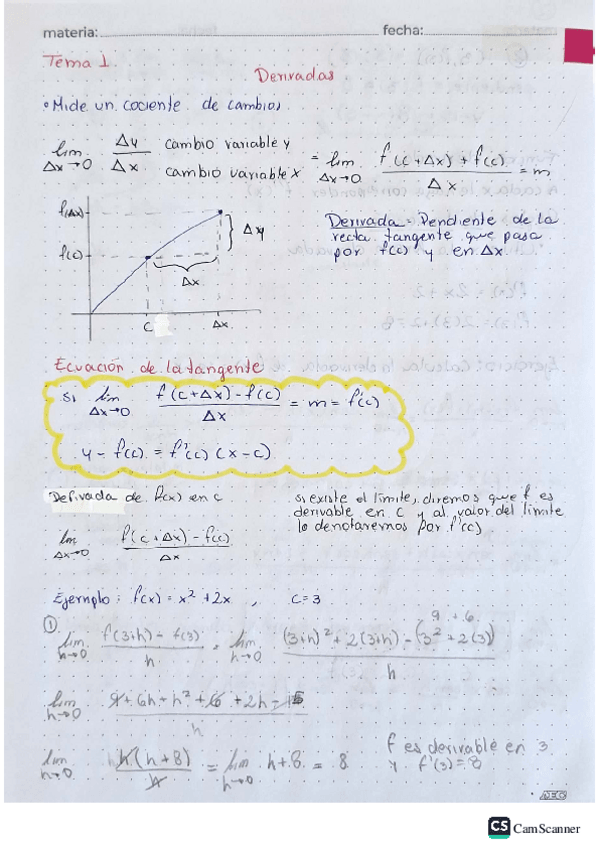 materia: fecha:
Tema 1
Derivadas
• Mide un cociente de cambios
lim Δx→0 Δy/Δx cambio variable y / cambio variable x = lim Δx→0 (f(c+Δx)+f(c))/Δx = m
f(Δx)
f(c)
Δy
Δx
C Δx
Derivada = Pendiente de la
recta tangente que pasa
por f(c) y en Δx
Ecuación de la tangente
Si lim Δx→0 (f(c+Δx)-f(c))/Δx = m = f'(c)
y - f(c) = f'(c) (x-c)
Derivada de f(x) en c
lim Δx→0 (f(c+Δx)-f(c))/Δx
si existe el límite, diremos que f es
derivable en C y al valor del límite
lo denotaremos por f'(c)
Ejemplo: f(x) = x² + 2x , C=3
① lim h→0 (f(3+h) - f(3))/h = lim h→0 ((3+h)² + 2(3+h) - (3² + 2(3)))/h
9 + 6
lim h→0 (9 + 6h + h² + 6 + 2h - 15)/h
lim h→0 h(h+8)/h = lim h→0 h+8 = 8
f es derivable en 3
y f'(3)=8
CS CamScanner